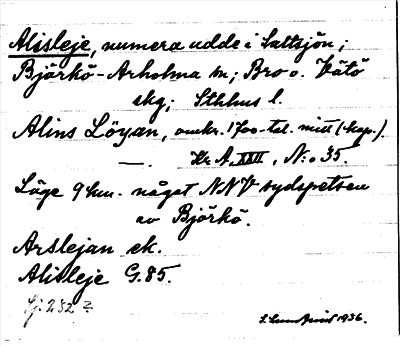 Alisleje, numera udde i Saltsjön;
Björkö-Arholma sn; Bro o. Vätö
skg; Sthlms l.
Alins Löyan, omkr. 1700-tal. mitt (kap.).
—. Kr. A. XXII, N:o 35.
Läge 9 km. något NNV sydspetsen
av Björkö.
Arslejan ek.
Alisleje G.85.
1936.